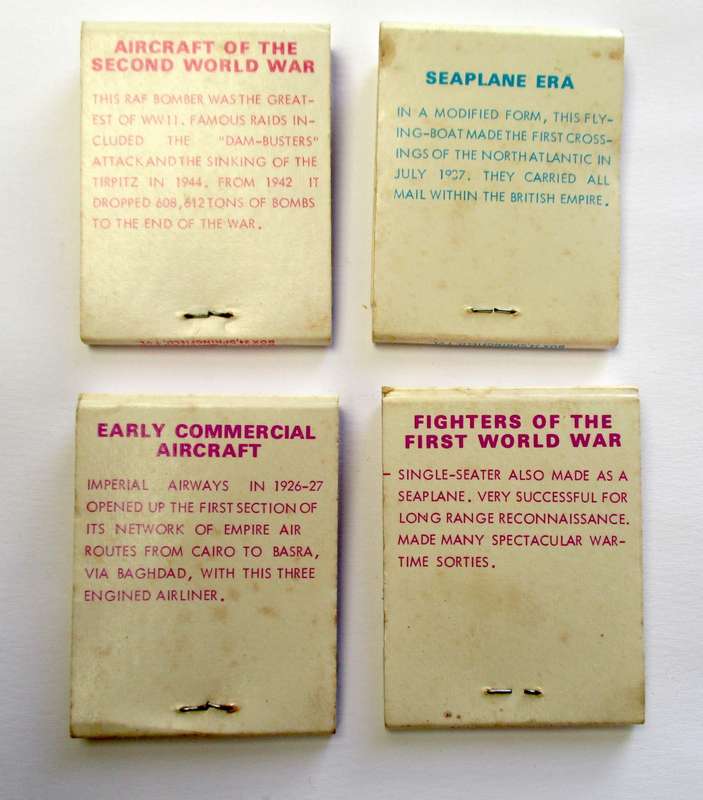 AIRCRAFT OF THE
SECOND WORLD WAR
THIS RAF BOMBER WAS THE GREAT-
EST OF WW11. FAMOUS RAIDS IN-
CLUDED THE "DAM-BUSTERS"
ATTACK AND THE SINKING OF THE
TIRPITZ IN 1944. FROM 1942 IT
DROPPED 608,612 TONS OF BOMBS
TO THE END OF THE WAR.
SEAPLANE ERA
IN A MODIFIED FORM, THIS FLY-
ING-BOAT MADE THE FIRST CROSS-
INGS OF THE NORTH ATLANTIC IN
JULY 1937. THEY CARRIED ALL
MAIL WITHIN THE BRITISH EMPIRE.
EARLY COMMERCIAL
AIRCRAFT
IMPERIAL AIRWAYS IN 1926-27
OPENED UP THE FIRST SECTION OF
ITS NETWORK OF EMPIRE AIR
ROUTES FROM CAIRO TO BASRA,
VIA BAGHDAD, WITH THIS THREE
ENGINED AIRLINER.
FIGHTERS OF THE
FIRST WORLD WAR
SINGLE-SEATER ALSO MADE AS A
SEAPLANE. VERY SUCCESSFUL FOR
LONG RANGE RECONNAISSANCE.
MADE MANY SPECTACULAR WAR-
TIME SORTIES.